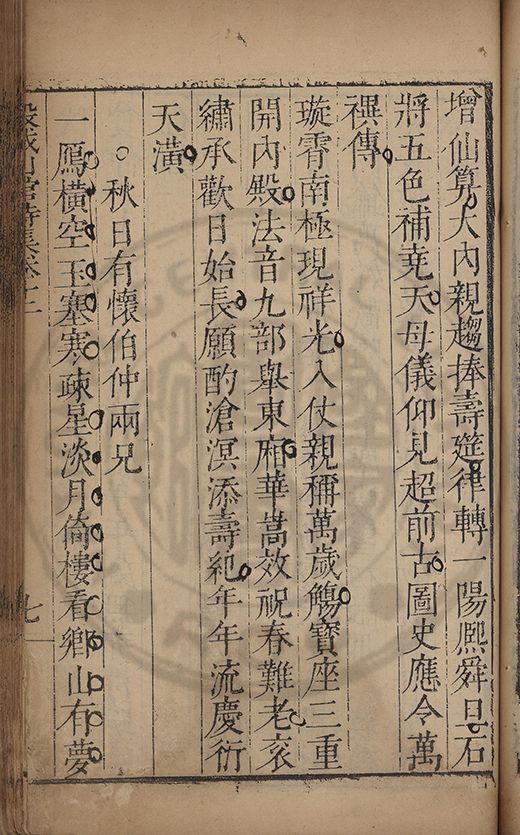 增仙算大內親趨捧壽筵律轉一陽熈舜日石
將五色補堯天母儀仰見超前古圖史應令萬
禩傳
璇霄南極現祥光入仗親稱萬歲觴寶座三重
開內殿法音九部𢍏東廂華嵩效祝春難老袞
繡承歡日始長願酌滄溟添壽紀年年流慶衍
天潢
秋日有懷伯仲兩兄
一鴈橫空玉塞寒疎星淡月倚樓看鄉山有夢
七